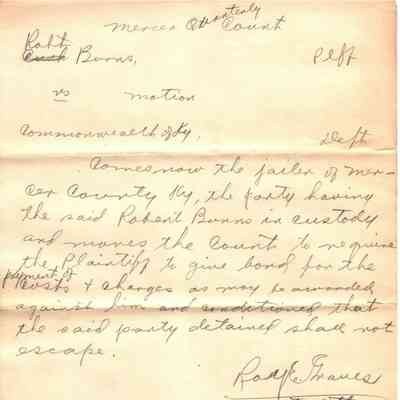 Mercer Quarterly Court
Robt
Burns, Plff
vs Motion
Commonwealth of Ky. Deft
Comes now the jailer of Mer-
cer County Ky, the party having
the said Robert Burns in custody
and moves the Court to require
the Plaintiff to give bond for the
payment of
Costs & charges as may be awarded
against him and conditioned that
the said party detained shall not
escape.
Graves